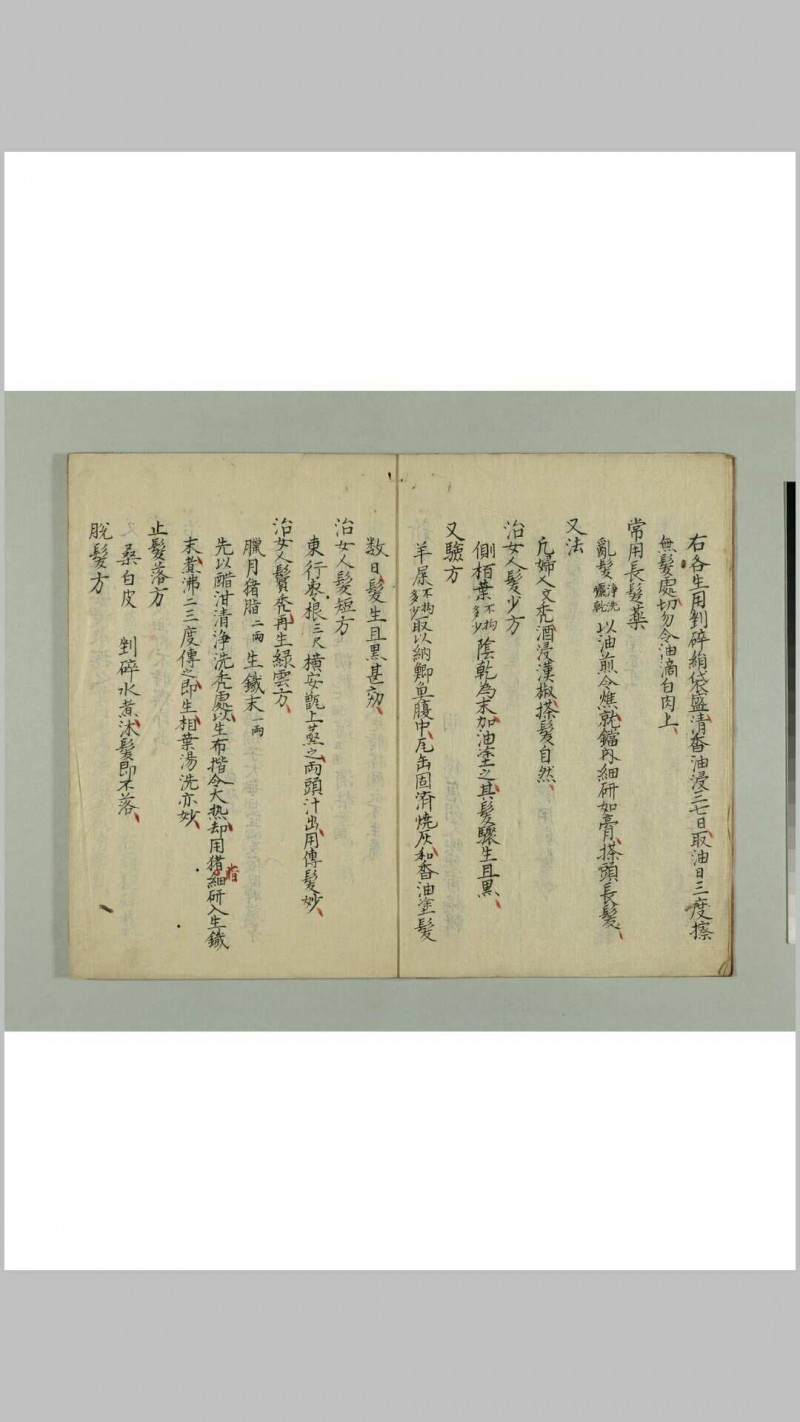 右各生用剉碎絹袋盛清香油浸三七日取油日三度擦
無髮處切勿令油滴白肉上
常用長髮藥
亂髮淨洗曬乾以油煎令燋就鐺內細研如膏搽頭長髮
又法
凡婦人文禿酒浸漢椒搽髮自然
治女人髮少方
側栢葉不拘多少陰乾為末加油塗之其髮驟生且黒
又驗方
羊屎不拘多少取以納鯽魚腹中瓦缶固済焼灰和香油塗髮
数日髮生且黒甚効
治女人髮短方
東行枣根三尺橫安甑上蒸之両頭汁出用傅髮妙
治女人鬢禿再生緑雲方
臘月猪脂二両生鐵末一両
先以醋泔清浄洗禿處以生布揩令大热却用猪脂細研入生鐵
末煮沸二三度傅之即生相葉湯洗亦妙
止髮落方
桑白皮 剉碎水煮沐髮即不落
脫髮方